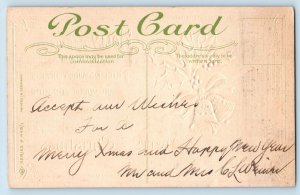 Post Card
This space may be used for
communication
The address only to be
written here
Accept our Wishes
For a
Merry Xmas and Happy New Year
Mr and Mrs C L